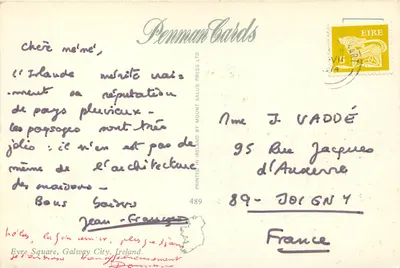 Penman Cards
EIRE
Chère mémé,
l'Irlande mérite vrai-
ment sa réputation
de pays pluvieux -
les paysages sont très
jolis : il n'en est pas de
même de l'architecture
des maisons -
Bons baisers
Jean-François
Eyre Square, Galway City, Ireland.
PRINTED IN IRELAND BY MOUNT SALUS PRESS LTD
489
Mme J. VADDÉ
95 Rue Jacques
d'Auxerre
89 - JOIGNY
France